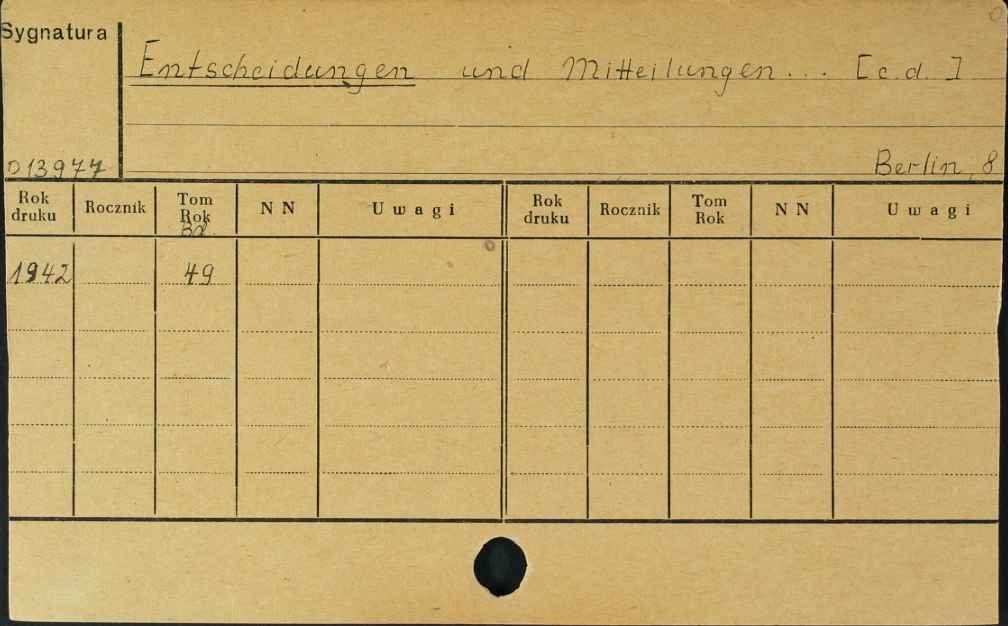 Sygnatura
Entscheidungen und Mitteilungen... [c.d.]
013977
Berlin, 8
Rok druku Rocznik Tom Rok Bd. NN Uwagi Rok druku Rocznik Tom Rok NN Uwagi
1942 49